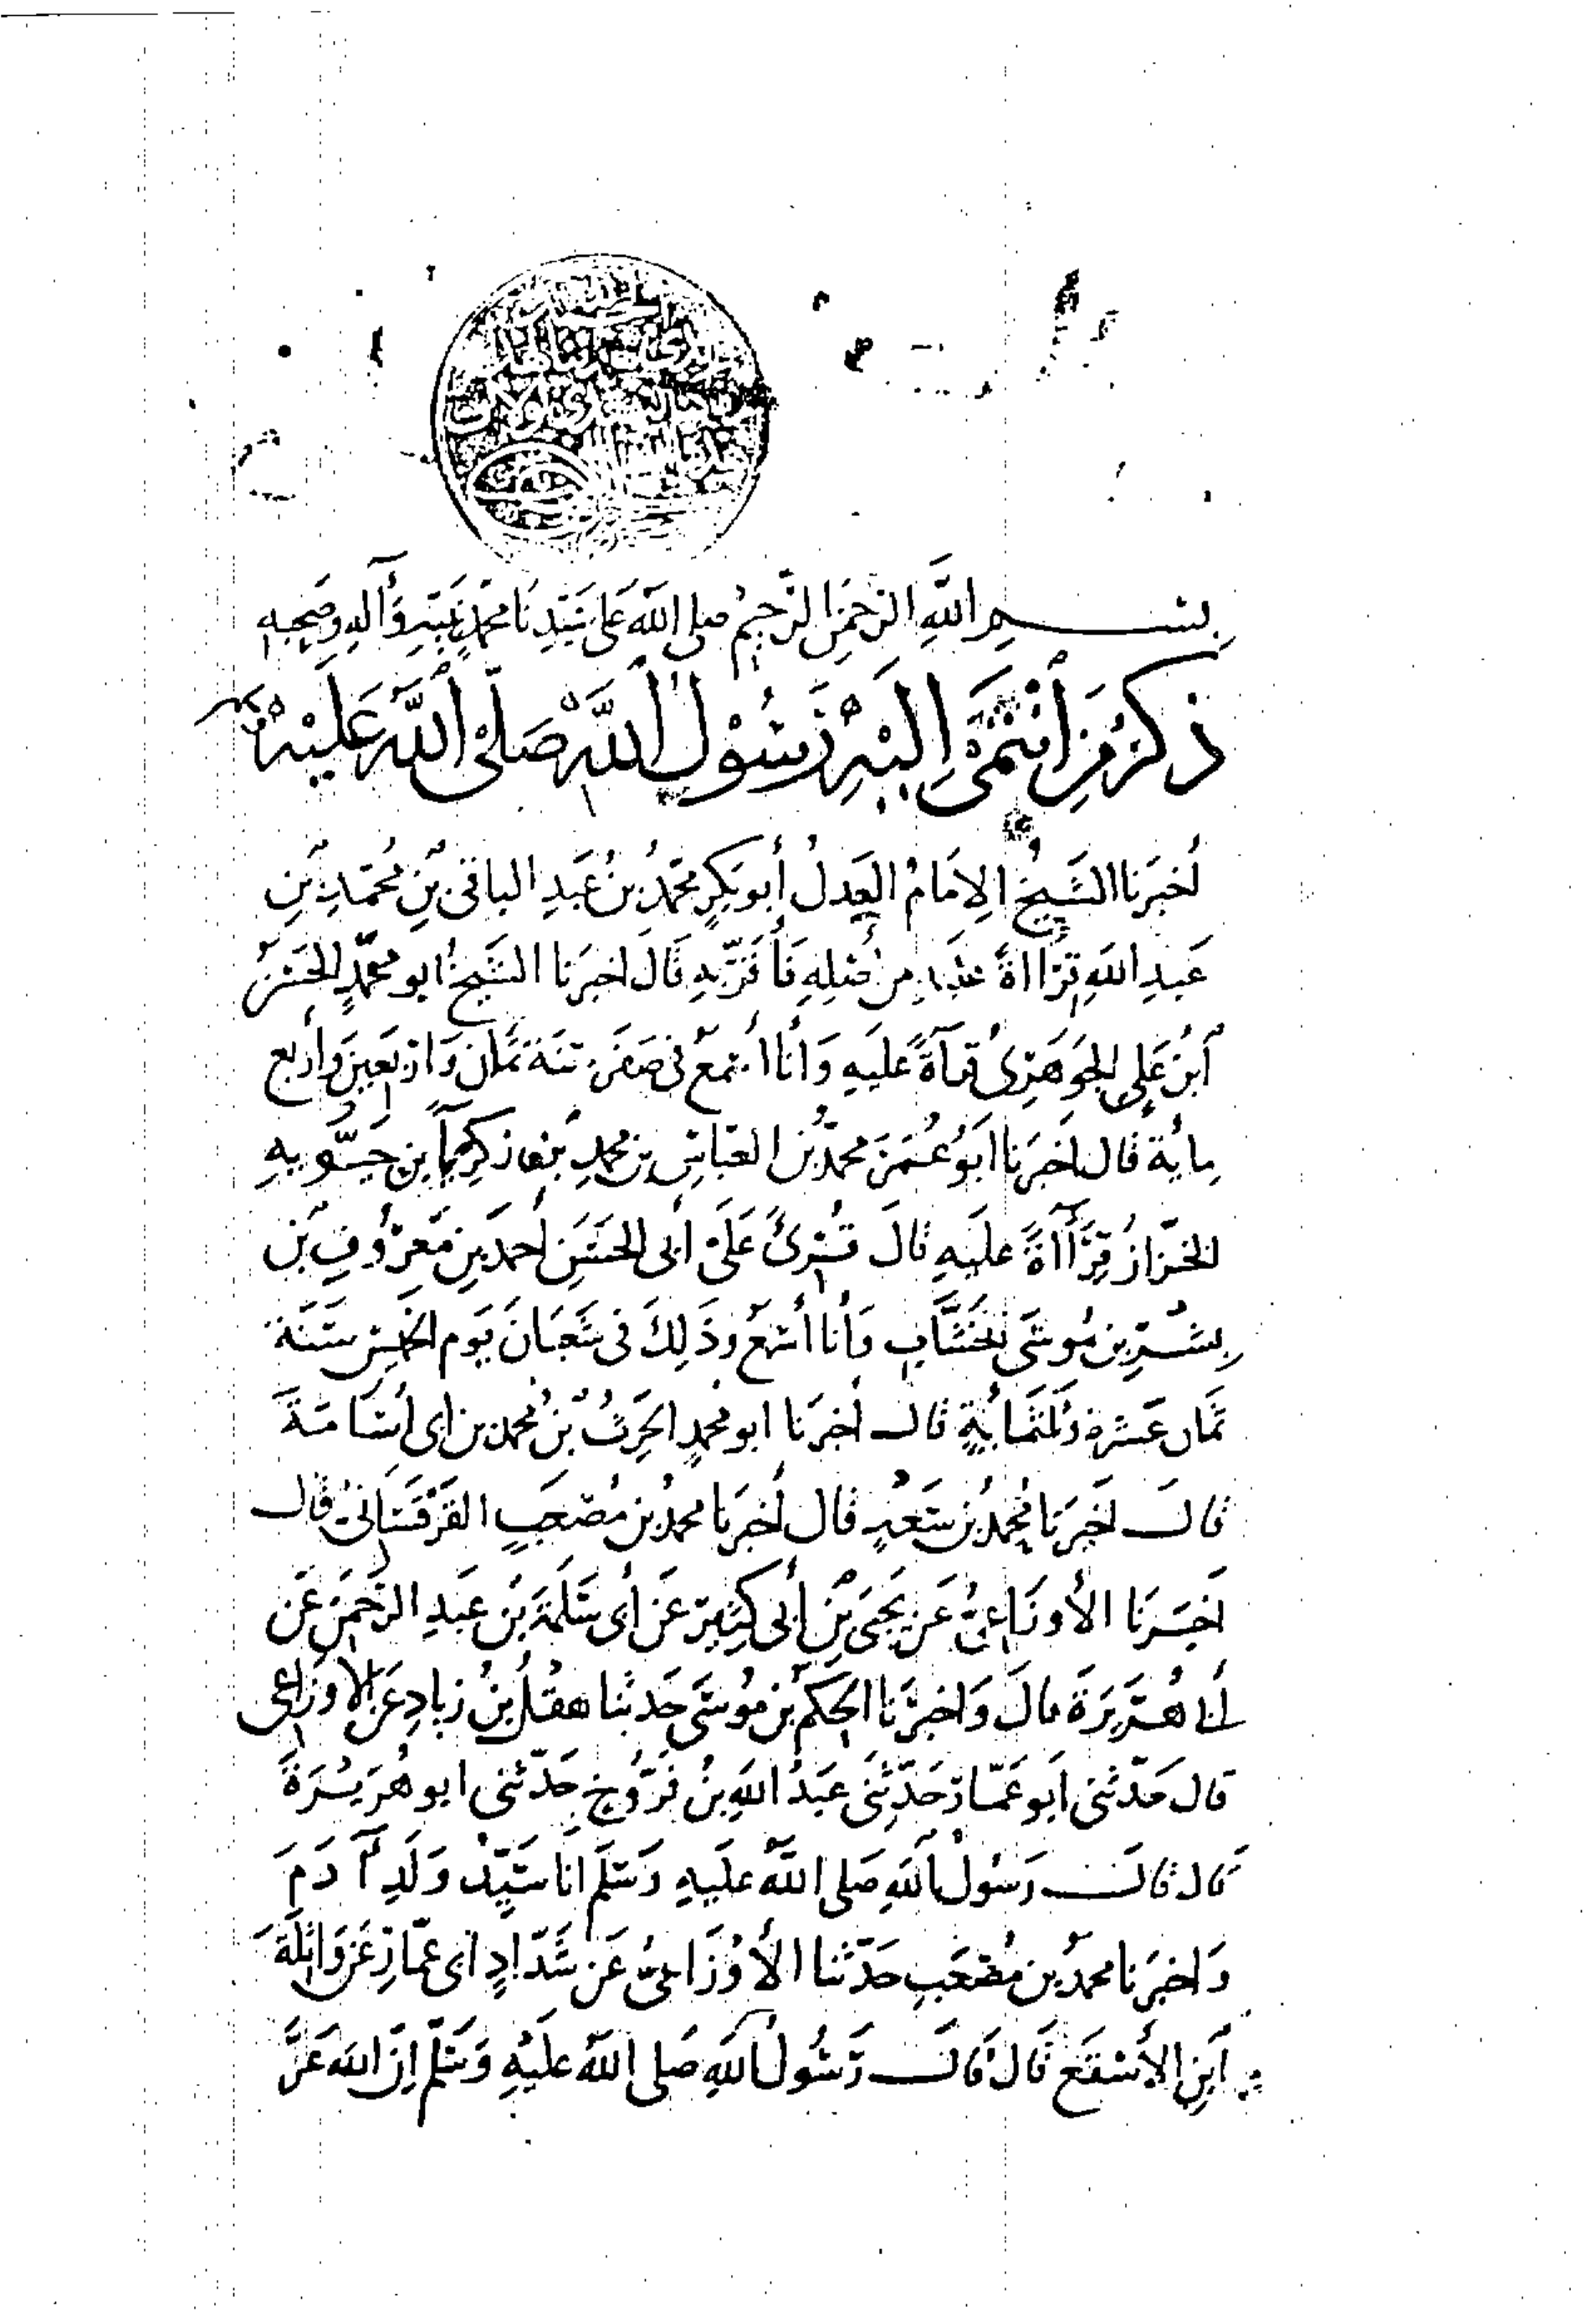 بسم الله الرحمن الرحيم صلى الله على سيدنا محمد نبيه وآله وصحبه
ذكر من انتمى إليه رسول الله صلى الله عليه
أخبرنا الشيخ الإمام العدل أبو بكر محمد بن عبد الباقي بن محمد بن
عبد الله قراءة عليه من فأقر به قال أخبرنا الشيخ أبو محمد الحسن
ابن علي الجوهري قراءة عليه وأنا أسمع في صفر سنة ثمان وأربعين وأربع
مائة قال أخبرنا أبو عمر محمد بن العباس بن محمد بن زكريا بن حيويه
الخزاز قراءة عليه قال قرئ على أبي الحسن أحمد بن معروف بن
بشر بن موسى الخشاب وأنا أسمع وذلك في شعبان يوم سنة
ثمان عشرة وثلثمائة قال أخبرنا أبو محمد الحرث بن محمد بن أبي أسامة
قال أخبرنا محمد بن سعد قال أخبرنا محمد بن مصعب القرقساني قال
أخبرنا الأوزاعي عن يحيى بن أبي كثير عن أبي سلمة بن عبد الرحمن عن
أبي هريرة قال وأخبرنا الحكم بن موسى حدثنا هقل بن زياد عن الأوزاعي
قال حدثني أبو عمار حدثني عبد الله بن فروخ حدثني أبو هريرة
قال قال رسول الله صلى الله عليه وسلم أنا سيد ولد آدم
وأخبرنا محمد بن مصعب حدثنا الأوزاعي عن شداد أبي عمار عن واثلة
ابن الأسقع قال قال رسول الله صلى الله عليه وسلم إن الله عز